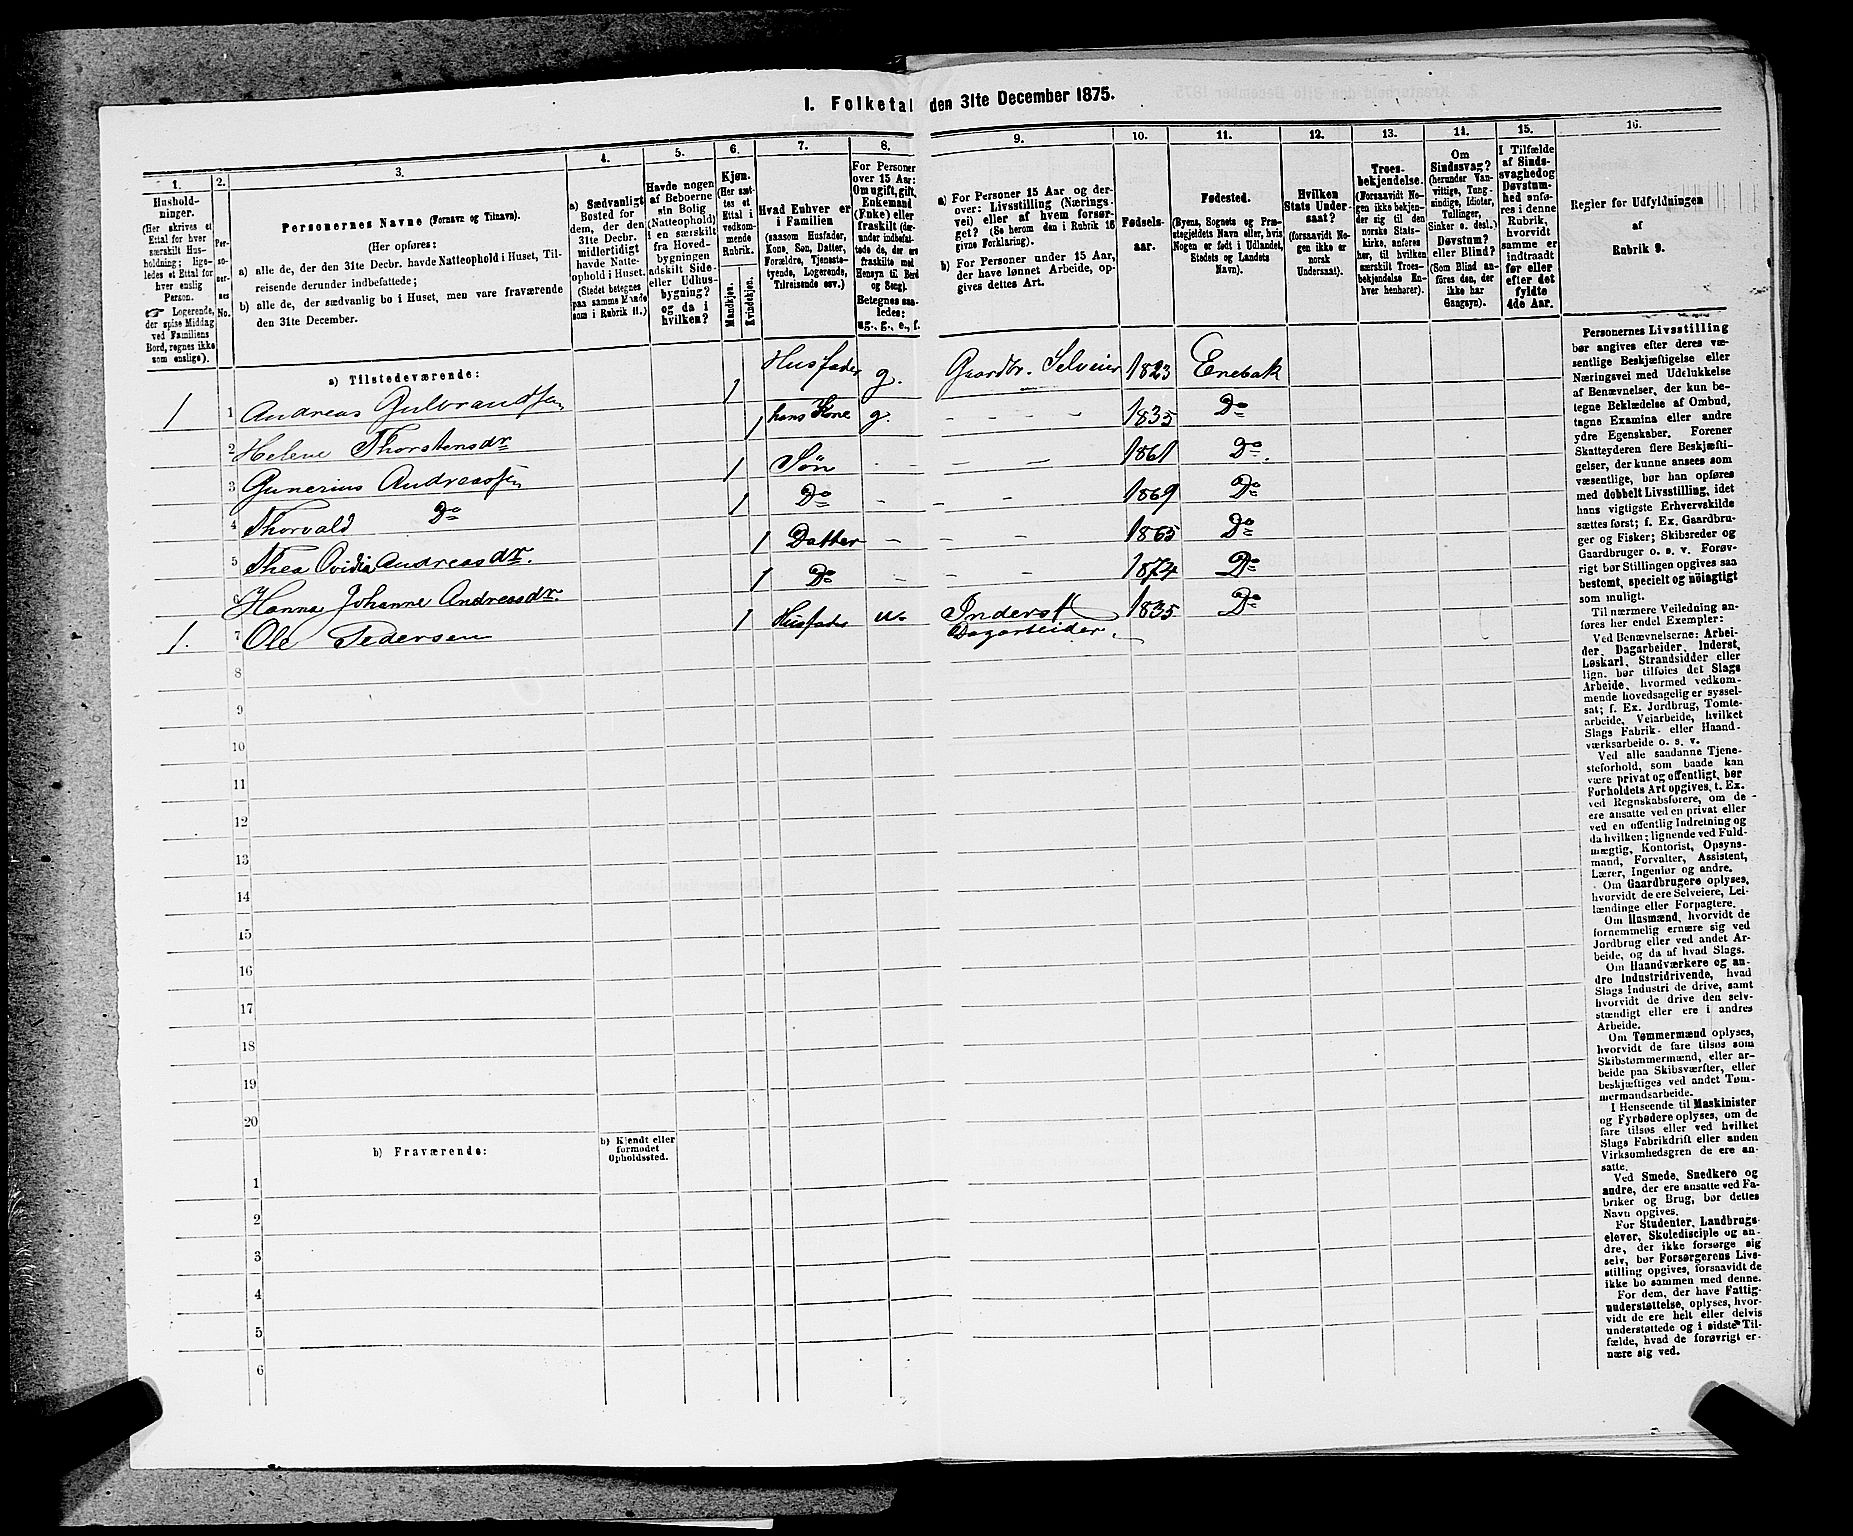 I. Folketal den 31te December 1875.
1.
Hushold-
ninger.
(Her skrives et
Ettal for hver
særskilt Hus-
holdning; lige-
ledes et Ettal for
hver enslig
Person.
☞ Logerende,
der spise Middag
ved Familiens
Bord, regnes ikke
som enslige).
2.
Per-
so-
ner-
nes
No.
3.
Personernes Navne (Fornavn og Tilnavn).
(Her opføres:
a) alle de, der den 31te Decbr. havde Natteophold i Huset, Til-
reisende derunder indbefattede;
b) alle de, der sædvanlig bo i Huset, men vare fraværende
den 31te December.
4.
a) Sædvanligt
Bosted for
dem, der den
31te Decbr.
midlertidigt
havde Natte-
ophold i Huset.
(Stedet betegnes
paa samme Maade
som i Rubrik 11.)
5.
Havde nogen
af Beboerne
sin Bolig
(Natteophold)
i en særskilt
fra Hoved-
bygningen
adskilt Side-
eller Udhus-
bygning?
og da i
hvilken?
6.
Kjøn.
(Her sæt-
tes et
Ettal i
vedkom-
mende
Rubrik.
Mandkjøn.
Kvindekjøn.
7.
Hvad Enhver er
i Familien
(saasom Husfader,
Kone, Søn, Datter,
Forældre, Tjeneste-
tyende, Logerende,
Tilreisende osv.)
8.
For Personer
over 15 Aar:
Om ugift, gift,
Enkemand
(Enke) eller
fraskilt (der-
under indbefat-
tede de, der ere
fraskilte med
Hensyn til Bord
og Seng).
Betegnes saa-
ledes:
ug., g., e., f.
9.
a) For Personer 15 Aar og der-
over: Livsstilling (Nærings-
vei) eller af hvem forsør-
get? (Se herom den i Rubrik 16
givne Forklaring).
b) For Personer under 15 Aar,
der have lønnet Arbeide, op-
gives dettes Art.
10.
Fødsels-
aar.
11.
Fødested.
(Byens, Sognets og Præ-
stegjeldets Navn eller, hvis
Nogen er født i Udlandet,
Stedets og Landets
Navn).
12.
Hvilken
Stats Under-
saat?
(forsaavidt No-
gen ikke er
norsk
Undersaat).
13.
Troes-
bekjendelse.
(Forsaavidt No-
gen ikke bekjen-
der sig til den
norske Stats-
kirke, anføres
her, til hvilken
særskilt Troes-
bekjendelse En-
hver henhører).
14.
Om
Sindssvag?
(herunder Van-
vittige, Tung-
sindige, Idioter,
Tullinger,
Sinker o. desl.)
Døvstum?
eller Blind?
(Som Blind an-
føres den, der
ikke har
Gangsyn).
15.
I Tilfælde
af Sinds-
svaghed og
Døvstum-
hed anfø-
res i denne
Rubrik,
hvorvidt
samme er
indtraadt
før eller
efter det
fyldte
4de Aar.
16.
Regler for Udfyldningen
af
Rubrik 9.
a) Tilstedeværende:
1 1 Andreas Gulbrandsen 1 Husfader g. Gaardbr. Selveier 1823 Enebak
2 Helene Thorstensdr 1 hans Kone g. - - - 1835 Do
3 Gunerius Andreassen 1 Søn - - - 1861 Do.
4 Thorvald Do 1 Do - - - 1869 Do
5 Thea Ovidia Andreasdr. 1 Datter - - - 1865 Do
6 Hanna Johanne Andreasdr. 1 Do - - - 1874 Do
1. 7 Ole Pedersen 1 Husfader u. Inderst 1835 Do
Dagarbeider.
8
9
10
11
12
13
14
15
16
17
18
19
20
b) Fraværende:
b) Kjendt eller
formodet
Opholdssted.
1
2
3
4
5
6
Personernes Livsstilling
bør angives efter deres væ-
sentlige Beskjæftigelse eller
Næringsvei med Udelukkelse
af Benævnelser, der kun be-
tegne Beklædelse af Ombud,
tagne Examina eller andre
ydre Egenskaber. Forener
Skatteyderen flere Beskjæfti-
gelser, der kunne ansees som
væsentlige, bør han opføres
med dobbelt Livsstilling, idet
hans vigtigste Erhvervskilde
sættes først; f. Ex. Gaardbru-
ger og Fisker; Skibsreder og
Gaardbruger o. s. v. Forøv-
rigt bør Stillingen opgives saa
bestemt, specielt og nøiagtigt
som muligt.
Til nærmere Veiledning an-
føres her endel Exempler:
Ved Benævnelserne: Arbei-
der, Dagarbeider, Inderst,
Løskarl, Strandsidder eller
lign. bør tilføies det Slags
Arbeide, hvormed vedkom-
mende hovedsagelig er syssel-
sat; f. Ex. Jordbrug, Tomte-
arbeide, Veiarbeide, hvilket
Slags Fabrik- eller Haand-
værksarbeide o. s. v.
Ved alle saadanne Tjene-
steforhold, som baade kan
være privat og offentligt, bør
Forholdets Art opgives, t. Ex.
ved Regnskabsførere, om de
ere ansatte ved en privat eller
ved en offentlig Indretning og
da hvilken; lignende ved Fuld-
mægtig, Kontorist, Opsyns-
mand, Forvalter, Assistent,
Lærer, Ingeniør og andre.
Om Gaardbrugere oplyses,
hvorvidt de ere Selveiere, Lei-
lændinge eller Forpagtere.
Om Husmænd, hvorvidt de
fornemmelig ernære sig ved
Jordbrug eller ved andet Ar-
beide, og da af hvad Slags.
Om Haandværkere og an-
dre Industridrivende, hvad
Slags Industri de drive, samt
hvorvidt de drive den selv-
stændigt eller ere i andres
Arbeide.
Om Tømmermænd oplyses,
hvorvidt de fare tilsøs som
Skibstømmermænd, eller ar-
beide paa Skibsværfter, eller
beskjæftiges ved andet Tøm-
mermandsarbeide.
I Henseende til Maskinister
og Fyrbødere oplyses, om de
fare tilsøs eller ved hvilket
Slags Fabrikdrift eller anden
Virksomhedsgren de ere an-
satte.
Ved Smede, Snedkere og
andre, der ere ansatte ved Fa-
briker og Brug, bør dettes
Navn opgives.
For Studenter, Landbrugs-
elever, Skoledisciple og an-
dre, der ikke forsørge sig
selv, bør Forsørgerens Livs-
stilling opgives, forsaavidt de
ikke bo sammen med denne.
For dem, der have Fattig-
understøttelse, oplyses, hvor-
vidt de ere helt eller delvis
understøttede og i sidste Til-
fælde, hvad de forøvrigt er-
nære sig ved.